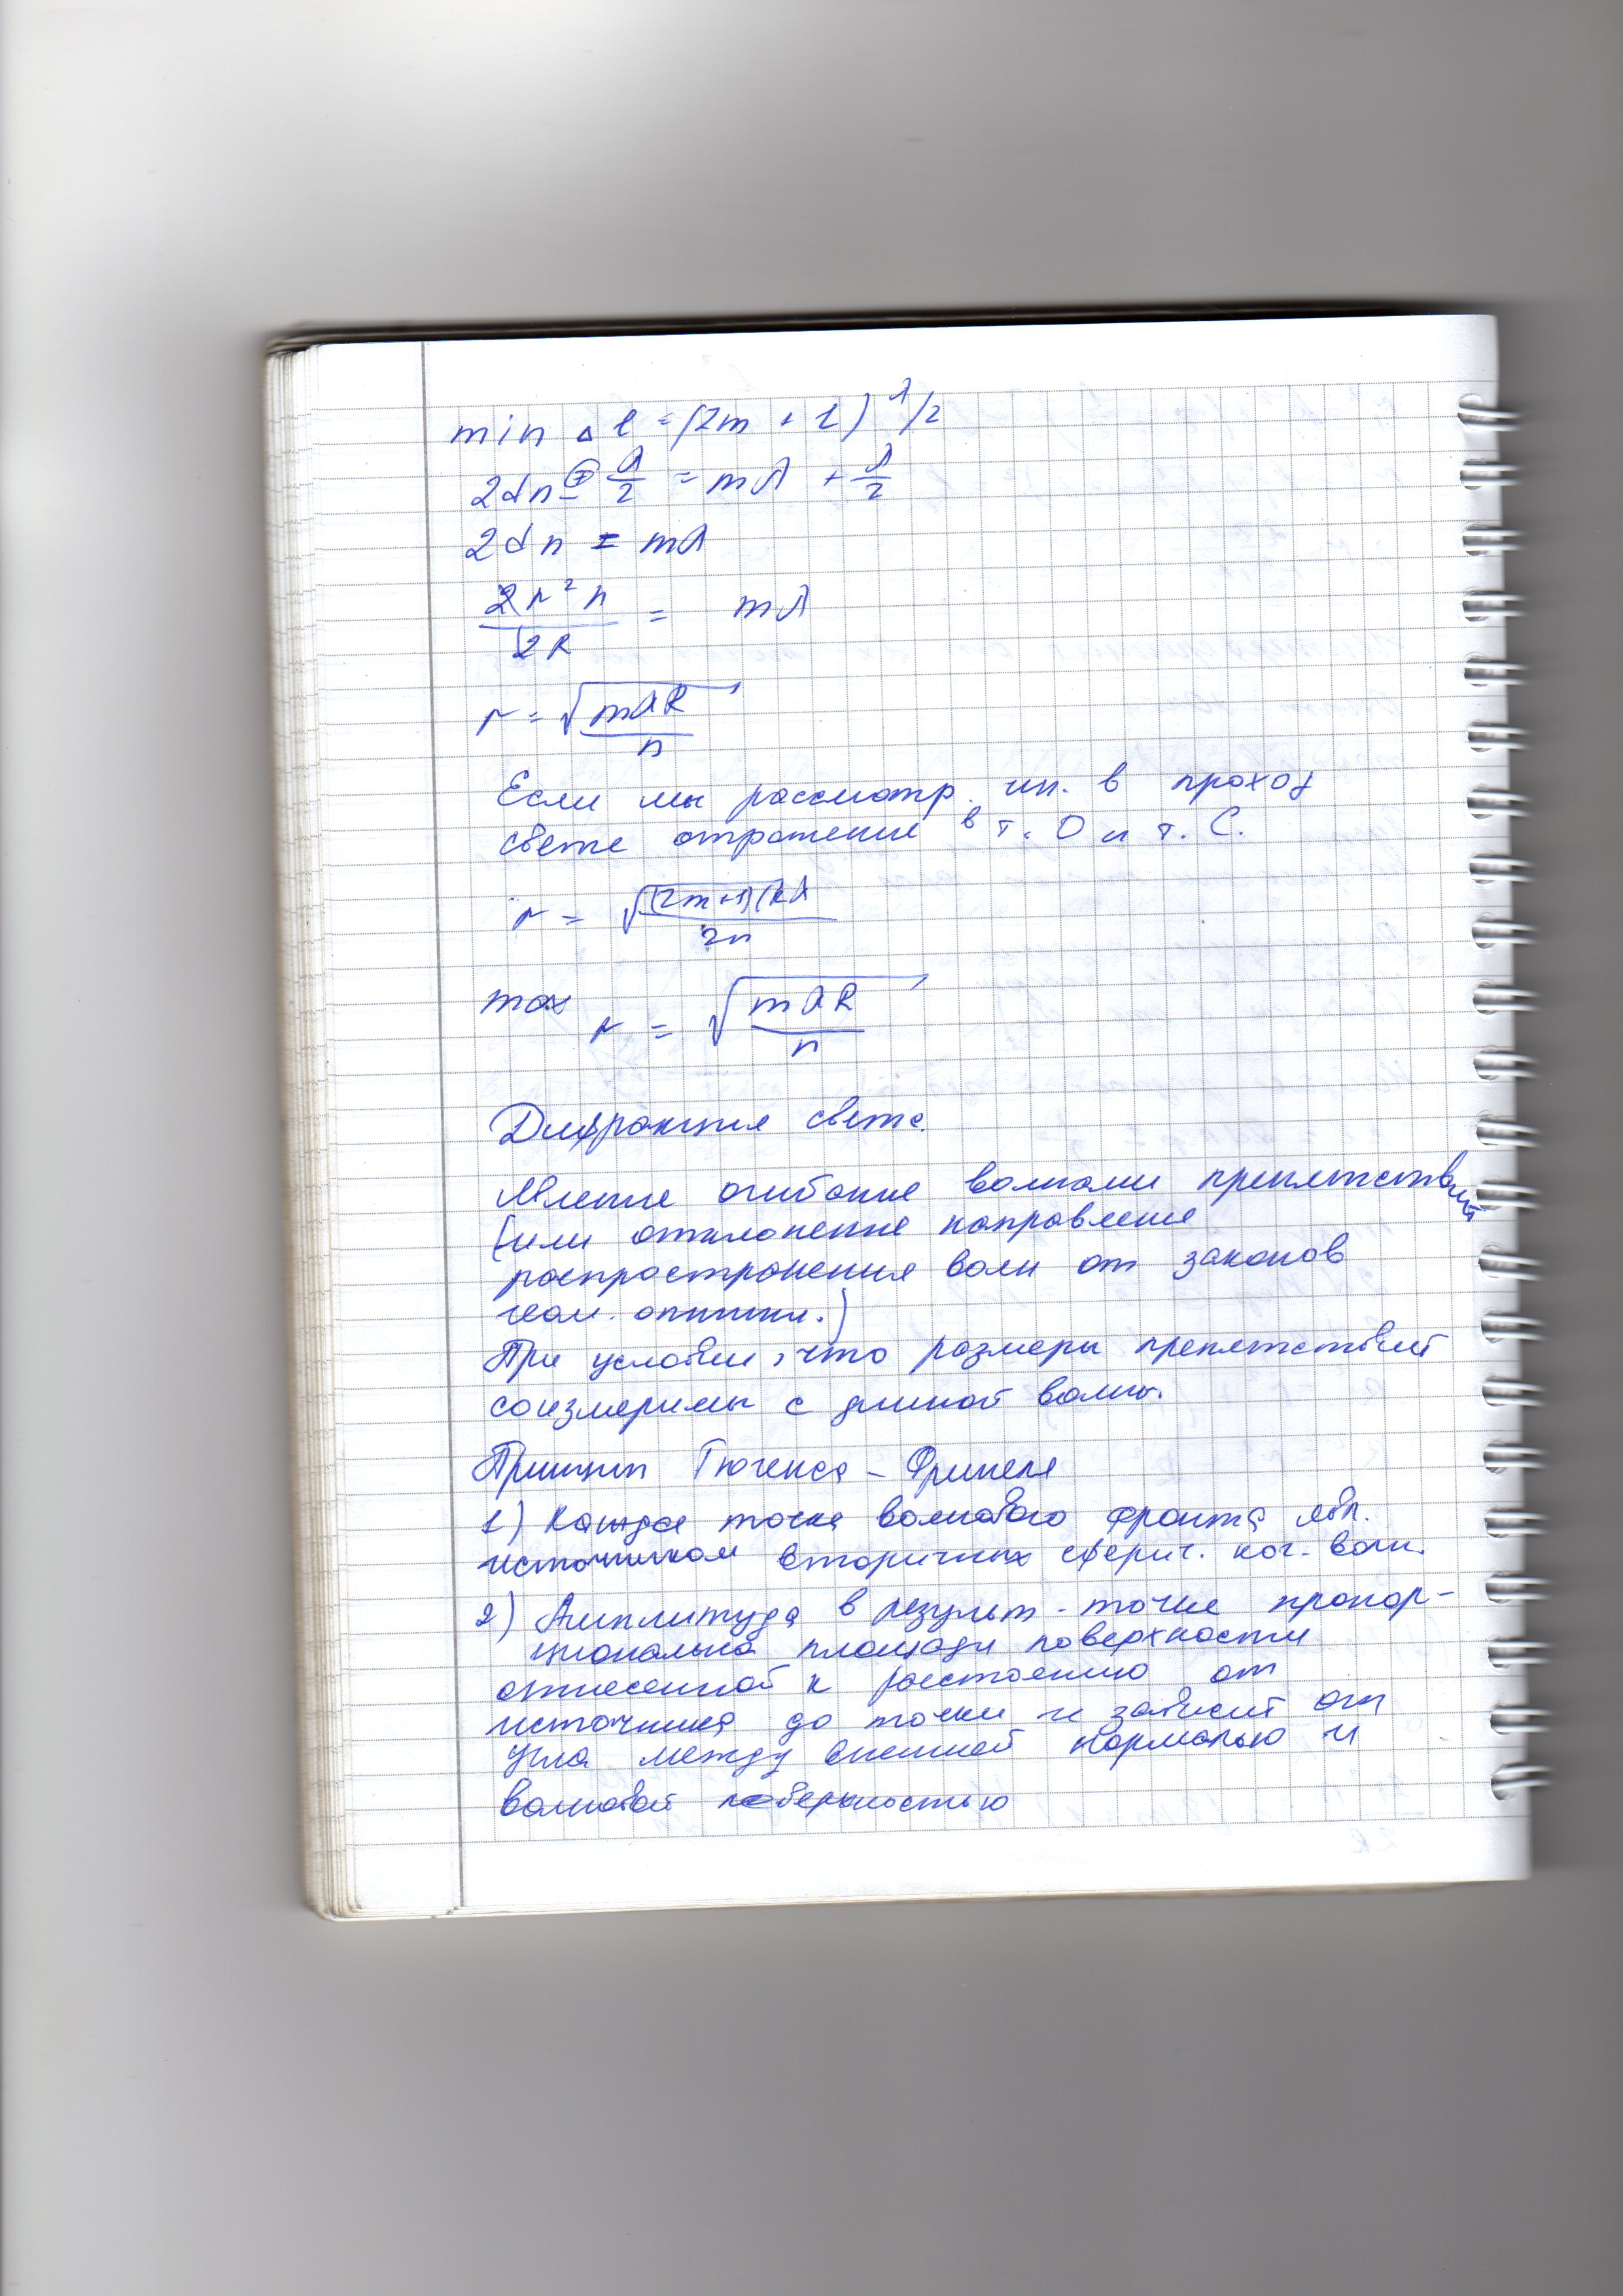 min Δl = (2m + 1) λ/2
2dn ± λ/2 = mλ + λ/2
2dn = mλ
2r² n / 2R = mλ
r = √(mλR / n)
Если мы рассмотр. ин. в проход
свете отражение в т. О и т. С.
r = √((2m+1)Rλ / 2n)
max r = √(mλR / n)
Дифракция света.
Явление огибание волнами препятствий
(или отклонение направления
распространения волн от законов
геом. оптики.)
При условии, что размеры препятствий
соизмеримы с длиной волны.
Принцип Гюгенса - Френеля
1) Каждая точка волнового фронта явл.
источником вторичных сферич. ког. волн.
2) Амплитуда в результ. точке пропор-
циональна площади поверхности
отнесенной к расстоянию от
источника до точки и зависит от
угла между внешней нормалью и
волновой поверхностью